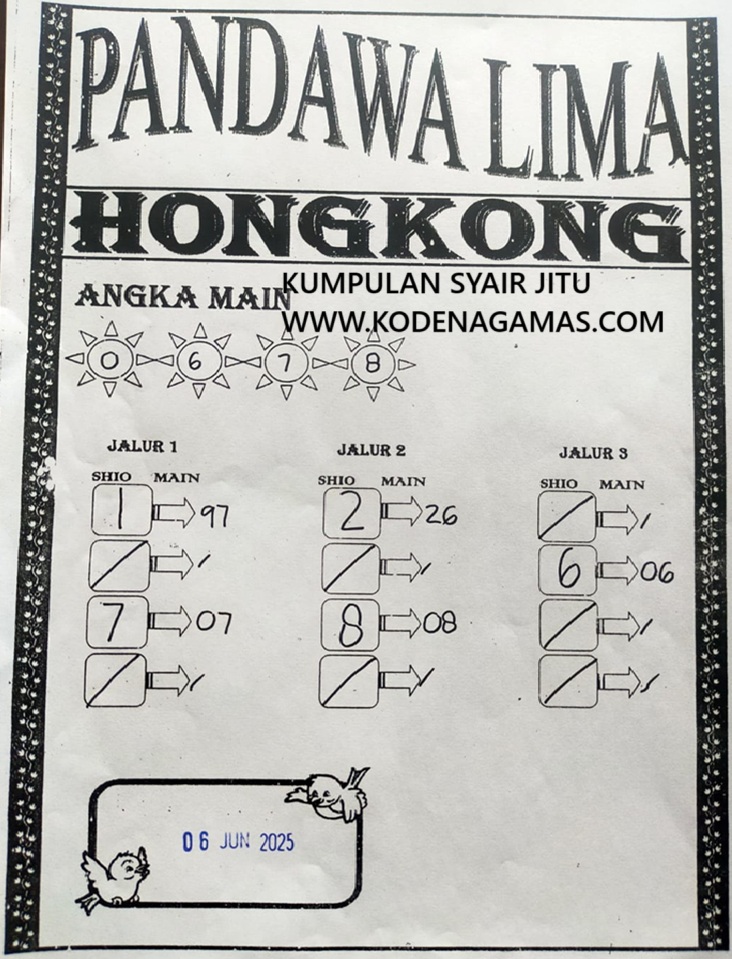 PANDAWA LIMA
HONGKONG
KUMPULAN SYAIR JITU
ANGKA MAIN
WWW.KODENAGAMAS.COM
0 6 7 8
JALUR 1 JALUR 2 JALUR 3
SHIO MAIN SHIO MAIN SHIO MAIN
1 97 2 26 / /
/ / / / 6 06
7 07 8 08 / /
/ / / / / /
06 JUN 2025